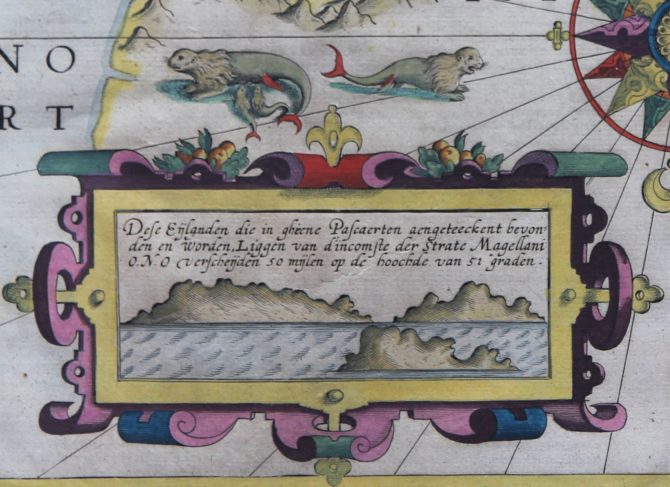 NO
RT
Dese Eijlanden die in gheene Pascaerten aengeteeckent bevon-
den en worden, Liggen van d'incomste der Strate Magellani
O.N.O verscheijden 50 mijlen op de hoochde van 51 graden.